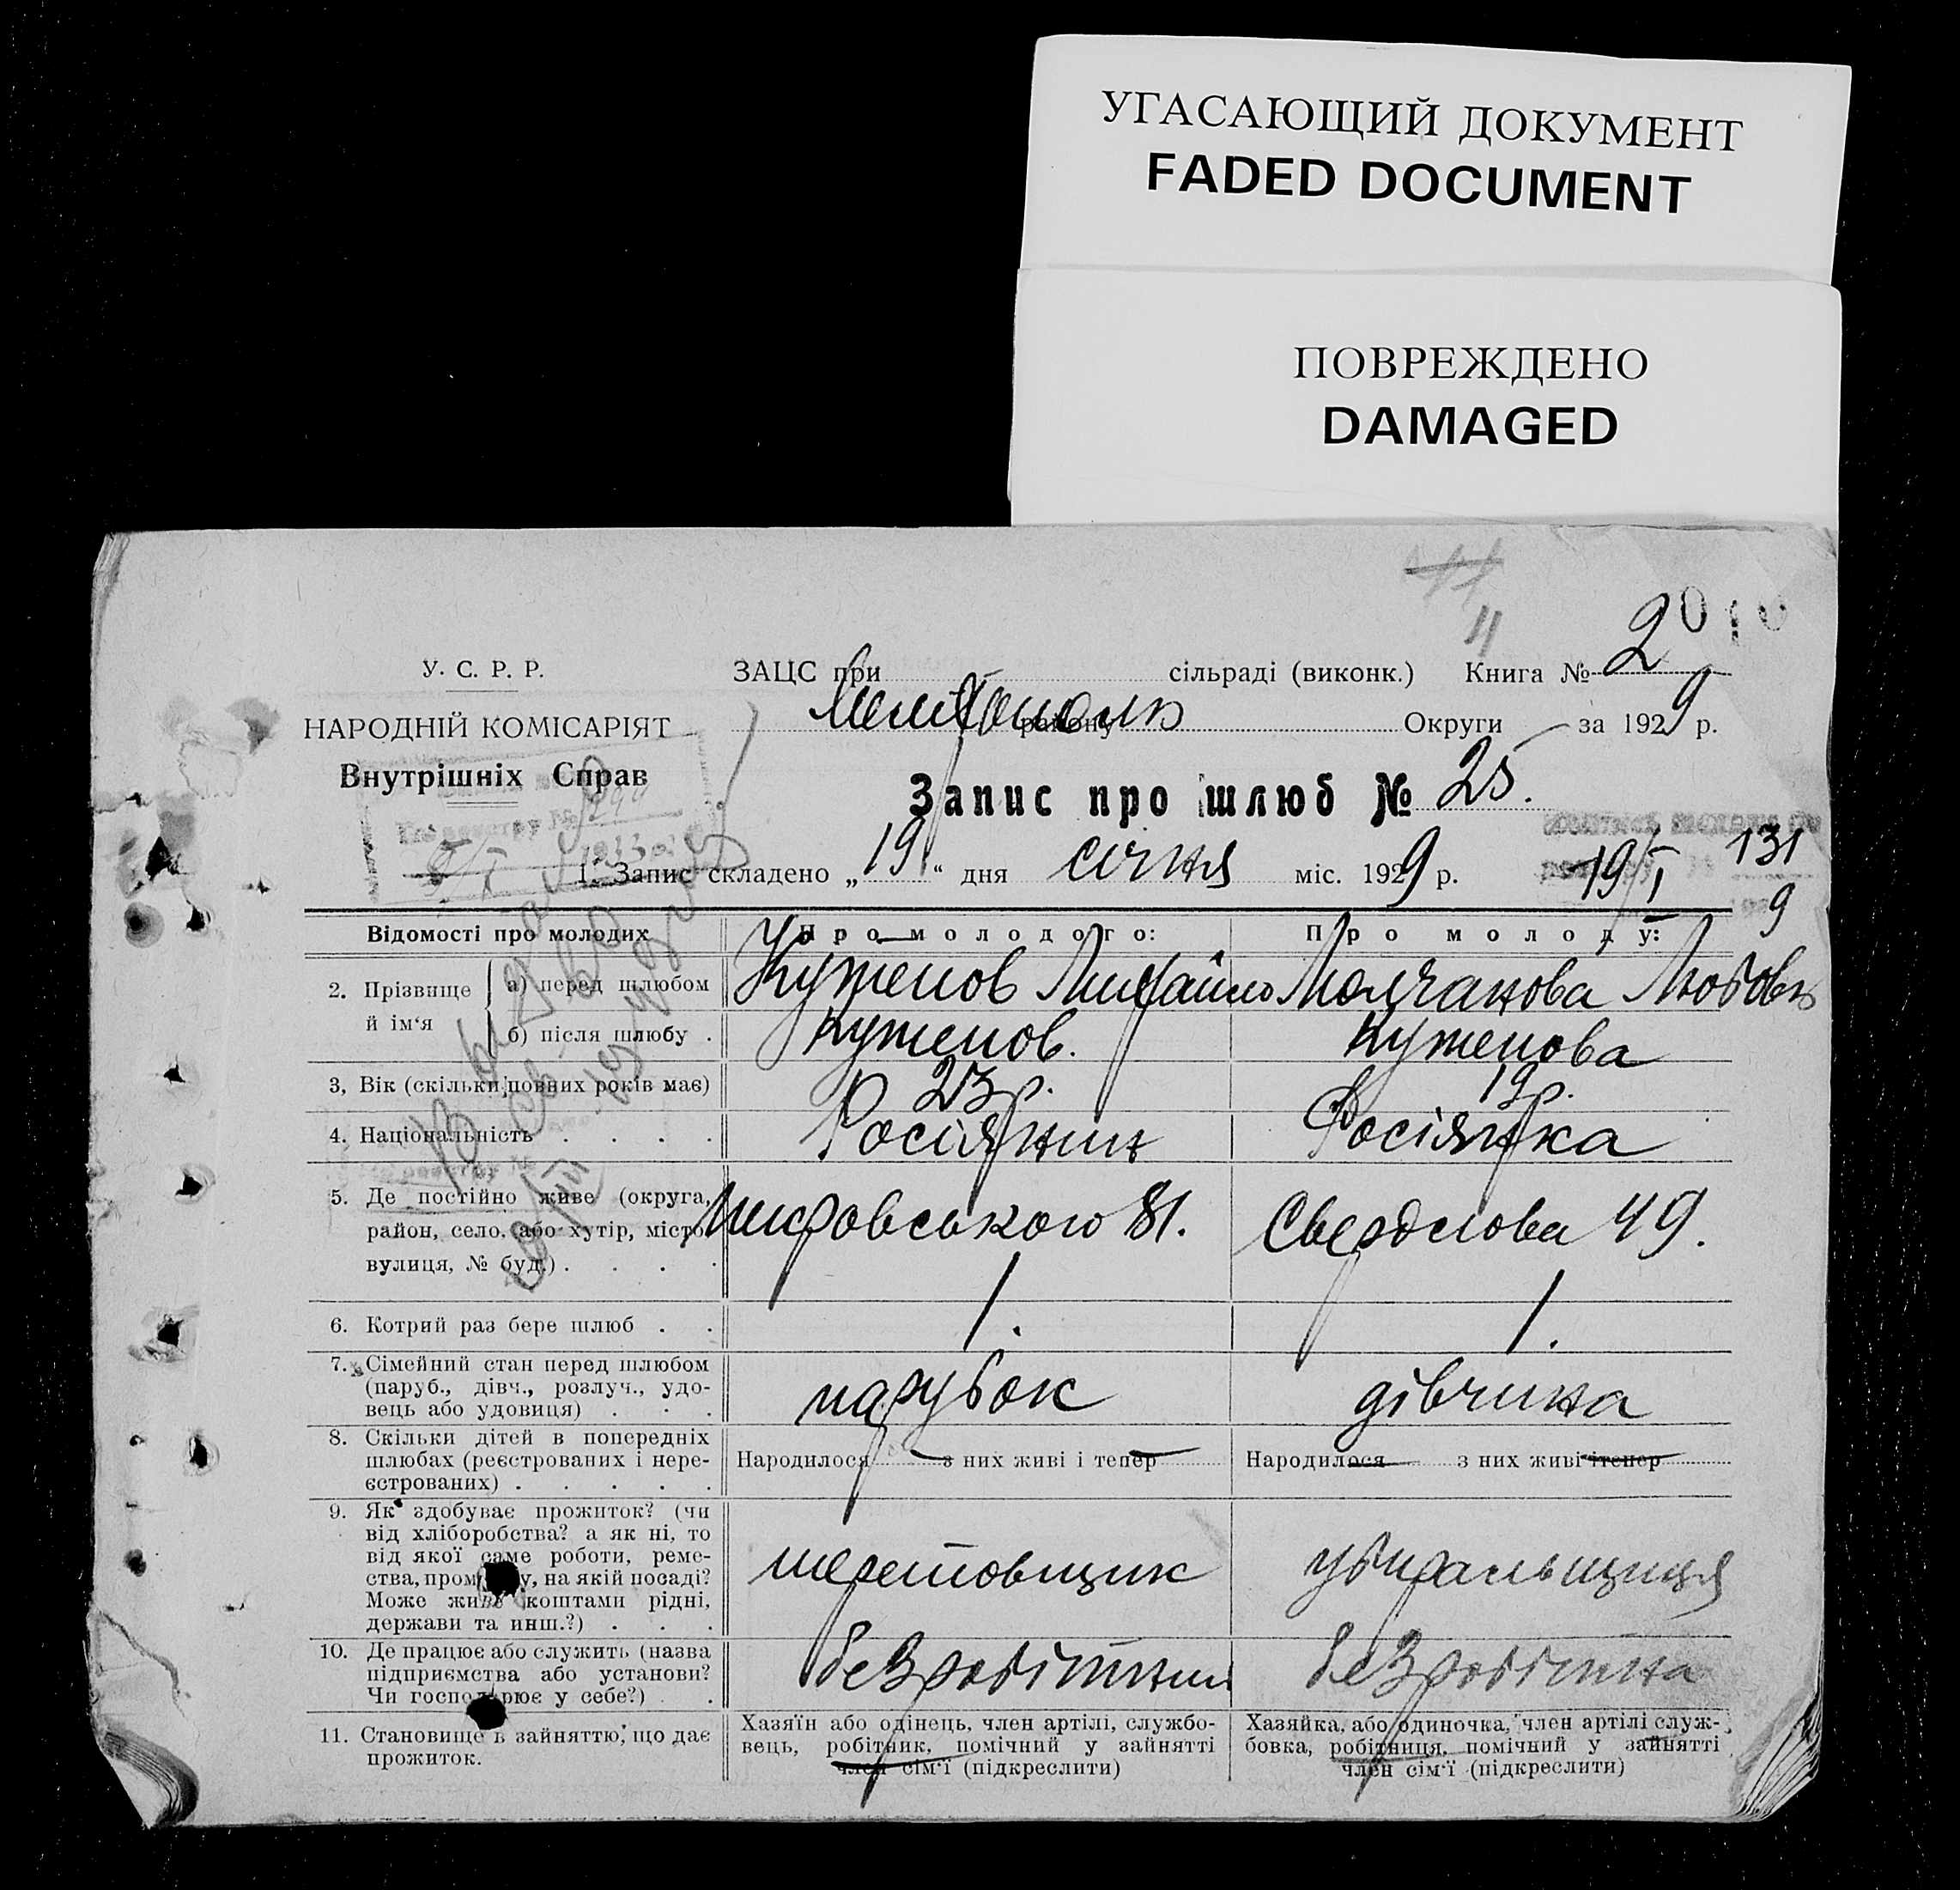 УГАСАЮЩИЙ ДОКУМЕНТ
FADED DOCUMENT
ПОВРЕЖДЕНО
DAMAGED
11
У. С. Р. Р.
ЗАЦС при сільраді (виконк.) Книга № 2
Мелітополь району Округи за 1929 р.
НАРОДНІЙ КОМІСАРІЯТ
Внутрішніх Справ
Запис про шлюб № 25.
1. Запис складено „19“ дня січня міс. 1929 р.
19/I 131
9
Відомості про молодих
Про молодого:
Про молоду:
2. Прізвище й ім‘я
а) перед шлюбом Куженов Михайло Молчанова Любовь
б) після шлюбу . Куженов. Куженова
3, Вік (скільки повних років має) 23 р. 19 р.
4. Національність . . . . Росіянин Росіянка
5. Де постійно живе (округа,
район, село, або хутір, місто
вулиця, № буд.) . . . .
81. Свердлова 49.
6. Котрий раз бере шлюб . . 1. 1.
7. Сімейний стан перед шлюбом
(паруб., дівч., розлуч., удо-
вець або удовиця) . . .
парубок дівчина
8. Скільки дітей в попередніх
шлюбах (реєстрованих і нере-
єстрованих) . . . . .
Народилося — з них живі і тепер —
Народилося — з них живі і тепер —
9. Як здобуває прожиток? (чи
від хліборобства? а як ні, то
від якої саме роботи, реме-
ства, промислу, на якій посаді?
Може живе коштами рідні,
держави та инш.?) . . .
шерстовщик убиральщиця
10. Де працює або служить (назва
підприємства або установи?
Чи господарює у себе?) . .
безробітний безробітна
11. Становище в зайняттю, що дає
прожиток.
Хазяїн або одінець, член артілі, службо-
вець, робітник, помічний у зайнятті
член сім‘ї (підкреслити)
Хазяйка, або одиночка, член артілі служ-
бовка, робітниця, помічний у зайнятті
член сім‘ї (підкреслити)